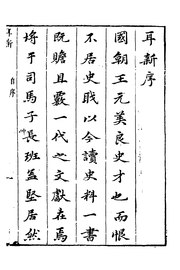 耳新序
國朝王元美良史才也而恨
不居史職以今讀史料一書
既贍且覈一代之文獻在焉
將于司馬子長班孟堅居然
自序